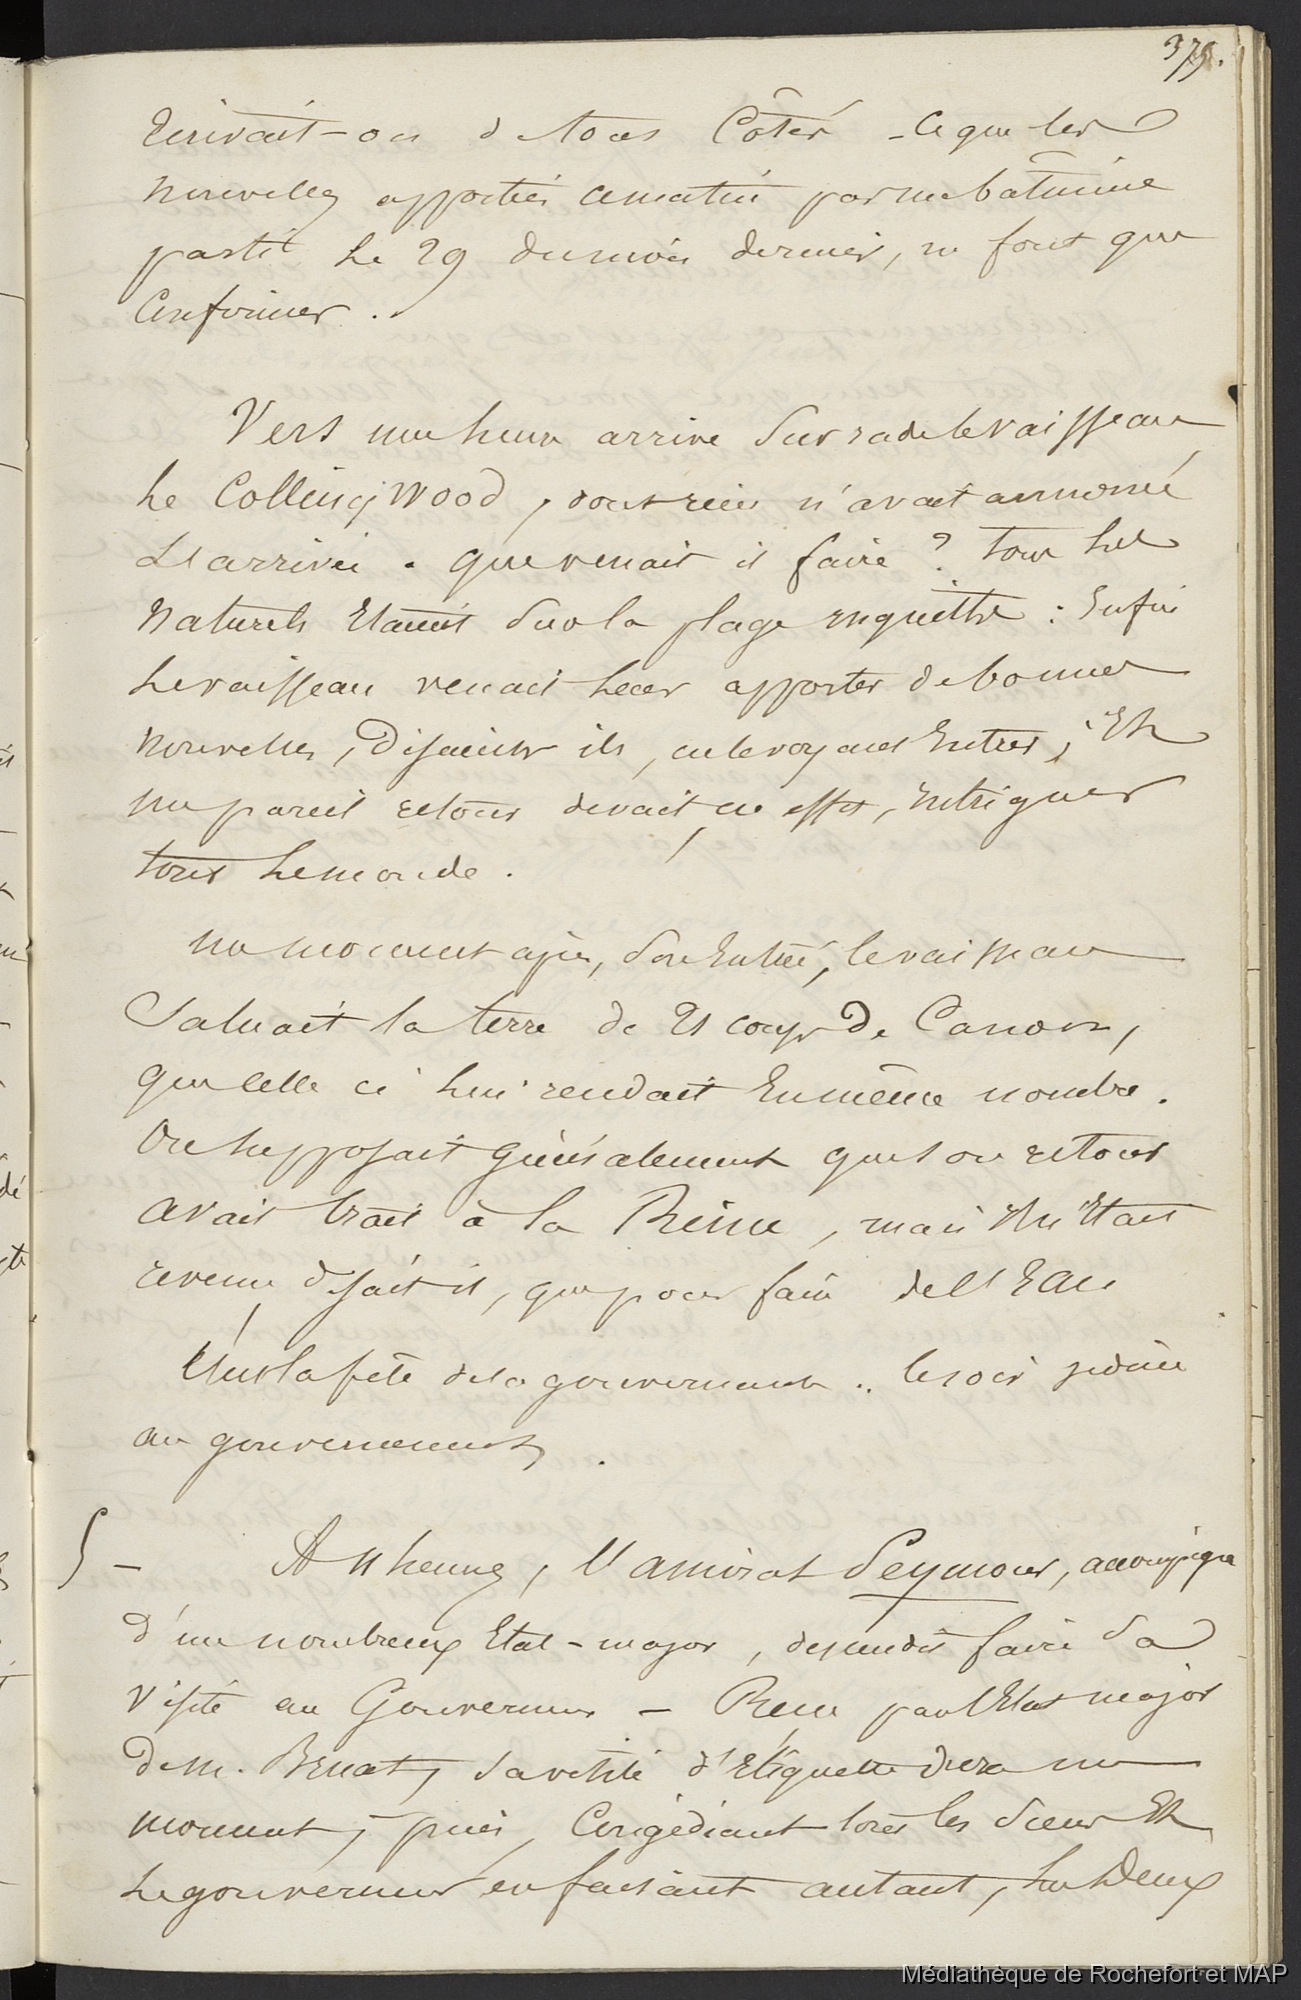 375.
Ecrivait-on de tous Côtés - ce que les
nouvelles apportées ce matin par un bâtiment
parti le 29 du mois dernier, ne font que
Confirmer.
Vers une heure arrive Sur rade le vaisseau
le Collingwood, dont rien n'avait annoncé
L'arrivée. que venait il faire ? tous les
Naturels Etaient Sur la plage : Enfin
le vaisseau venait leur apporter de bonnes
nouvelles, Disaient ils, en le voyant Entrer, Et
un pareil retour devait, en effet, intriguer
tout le monde.
un moment après, Son Entrée, le vaisseau
Saluait la terre de 21 coups de Canon,
que Celle ci lui rendait En même nombre.
On supposait Généralement que son retour
avait trait à la Reine, mais il n'était
revenu disait il, que pour faire de l'Eau
C'est la fête de la gouvernante. le soir soirée
au gouvernement.
5 - A 11 heures, l'amiral Seymour, accompagné
d'un nombreux Etat-major, descendit faire Sa
visite au Gouverneur - Recu par l'Etat major
de M. Bruat, Sa visite d'Etiquette dura un
moment, puis, Congédiant tous les Siens Et
le gouverneur en faisant autant, les Deux
Médiathèque de Rochefort et MAP